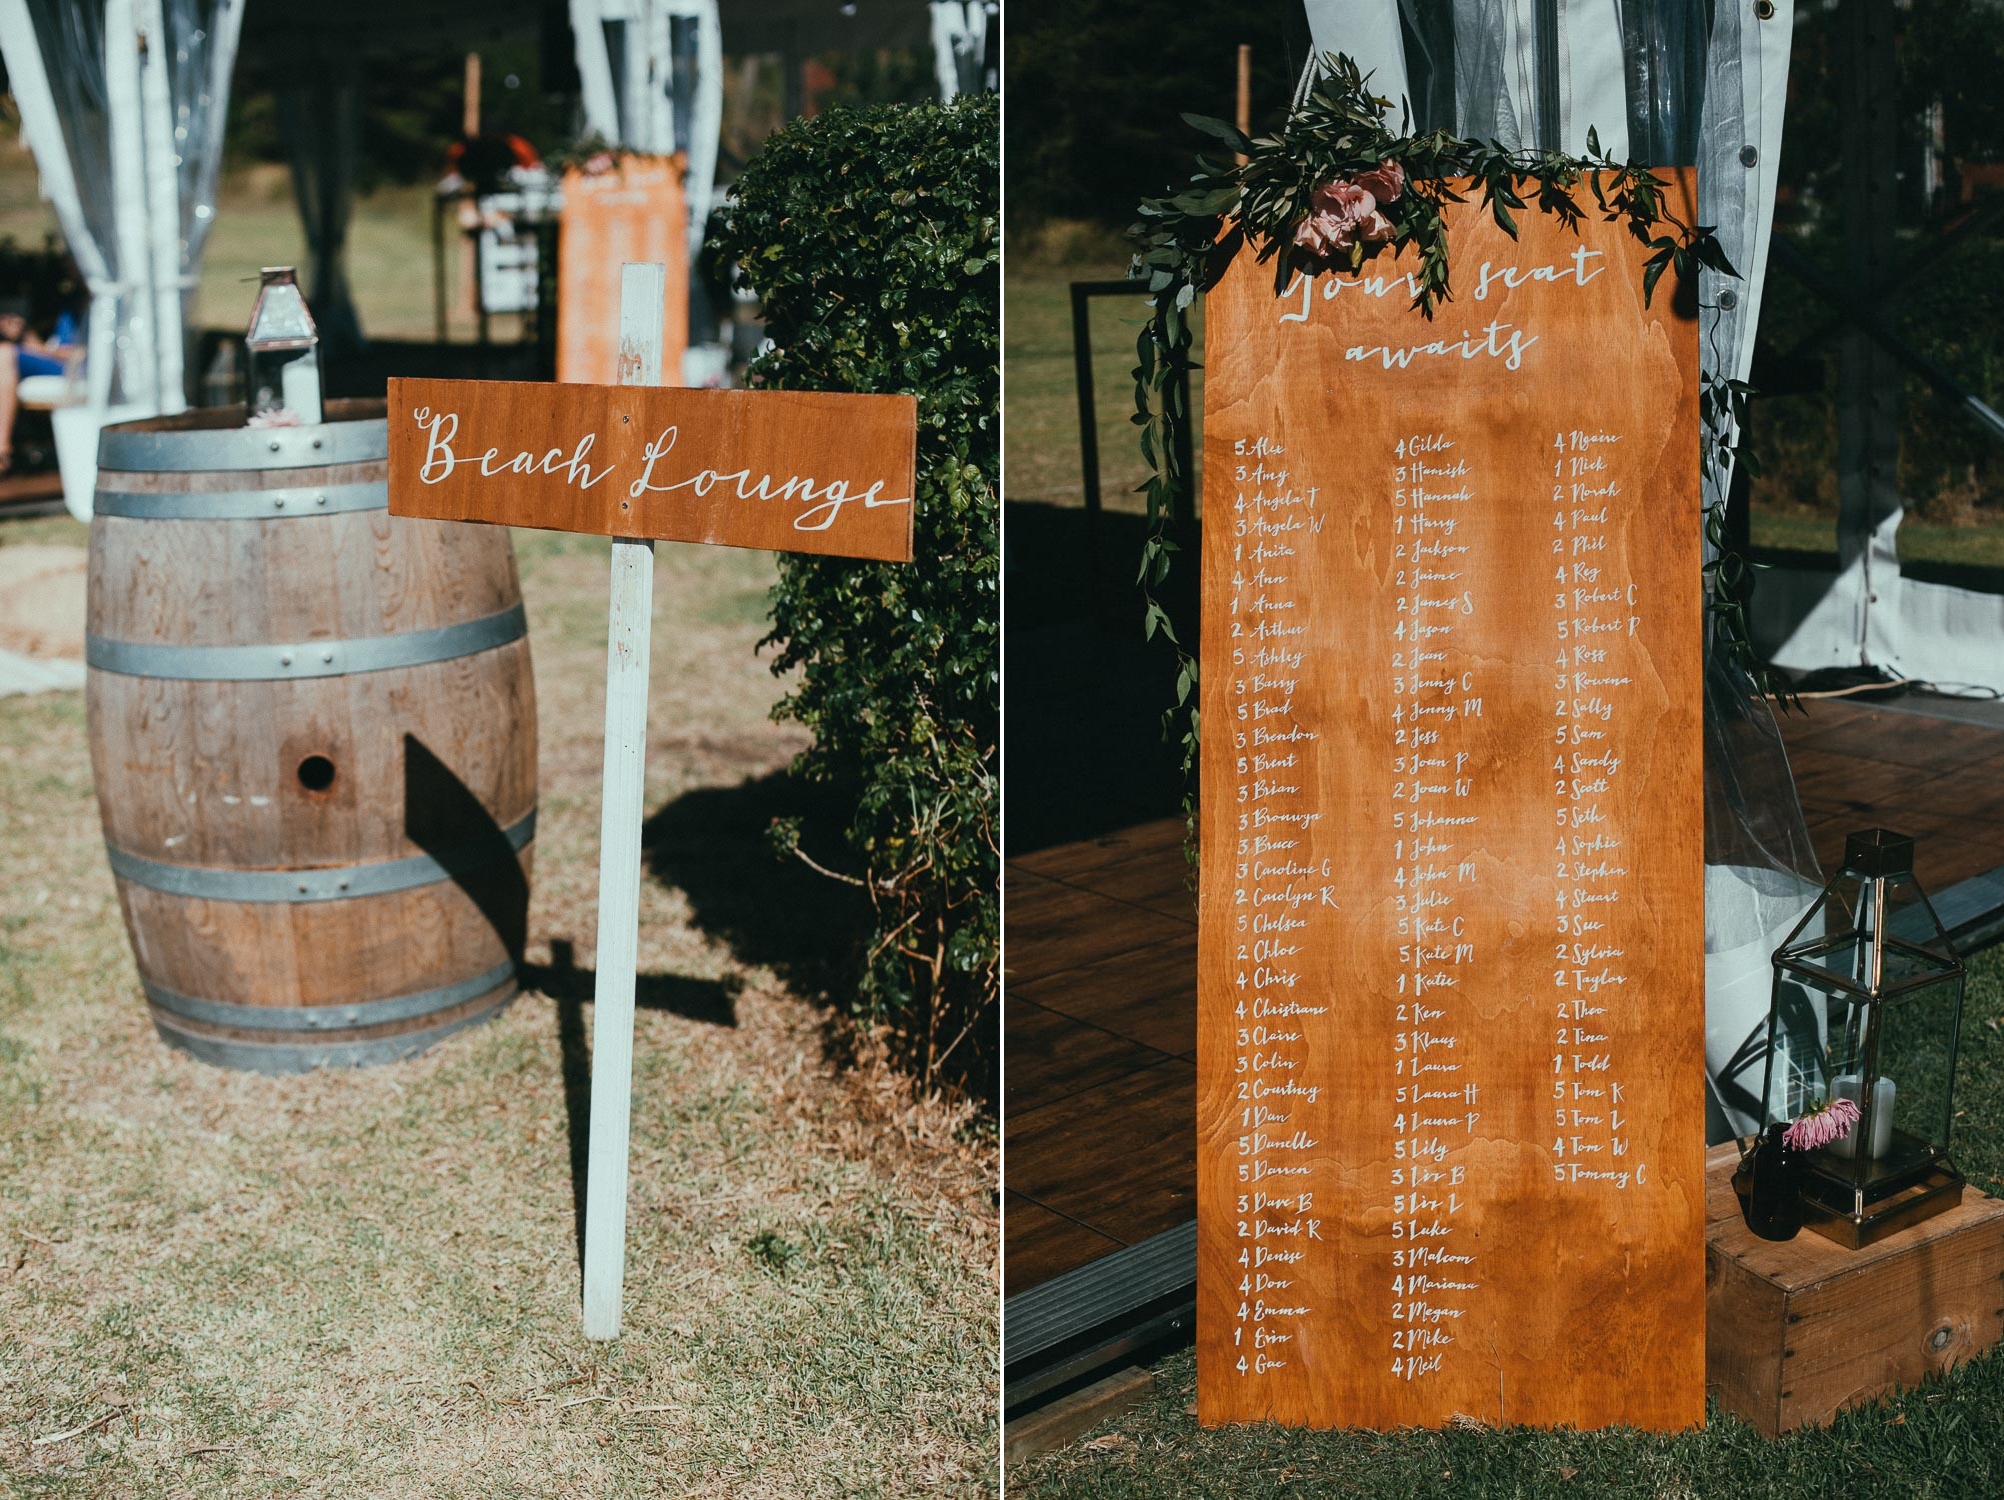 Beach Lounge
Your seat
awaits
5 Alex
3 Amy
4 Angela T
3 Angela W
1 Anita
4 Ann
1 Anna
2 Arthur
5 Ashley
3 Barry
5 Brad
3 Brendon
5 Brent
3 Brian
3 Bronwyn
3 Bruce
3 Caroline G
2 Carolyn R
5 Chelsea
2 Chloe
4 Chris
4 Christiane
3 Claire
3 Colin
2 Courtney
1 Dan
5 Danelle
5 Darren
3 Dave B
2 David R
4 Denise
4 Don
4 Emma
1 Erin
4 Gae
4 Gilda
3 Hamish
5 Hannah
1 Harry
2 Jackson
2 Jaime
2 James S
4 Jason
2 Jean
3 Jenny C
4 Jenny M
2 Jess
3 Joan P
2 Joan W
5 Johanna
1 John
4 John M
3 Julie
5 Kate C
5 Kate M
1 Katie
2 Ken
3 Klaus
1 Laura
5 Laura H
4 Laura P
5 Lily
3 Liz B
5 Liz L
5 Luke
3 Malcom
4 Mariana
2 Megan
2 Mike
4 Neil
4 Ngaire
1 Nick
2 Norah
4 Paul
2 Phil
4 Reg
3 Robert C
5 Robert P
4 Ross
3 Rowena
2 Sally
5 Sam
4 Sandy
2 Scott
5 Seth
4 Sophie
2 Stephen
4 Stuart
3 Sue
2 Sylvia
2 Taylor
2 Theo
2 Tina
1 Todd
5 Tom K
5 Tom L
4 Tom W
5 Tommy C